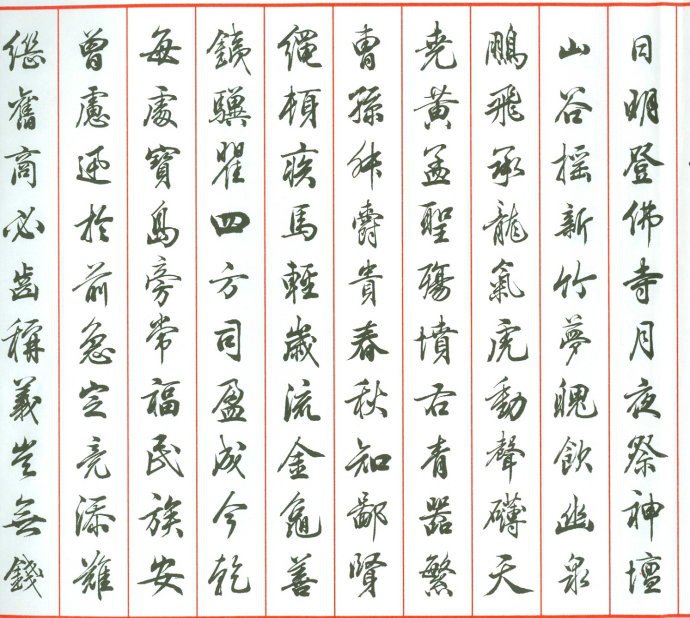 日明登佛寺月夜祭神壇
山谷搖新竹夢醜飲幽泉
鵬飛承龍氣虎動聲礴天
堯黃孟聖殤墳右青器繁
曹孫叔爵貴春秋知鄙賢
繩頓疾馬輕歲流金龜善
錢驥瞿四方司盈成今乾
每處寶島旁常福民族安
曾慮迅於前急定亮添難
繼舊商必齒稱義豈無錢